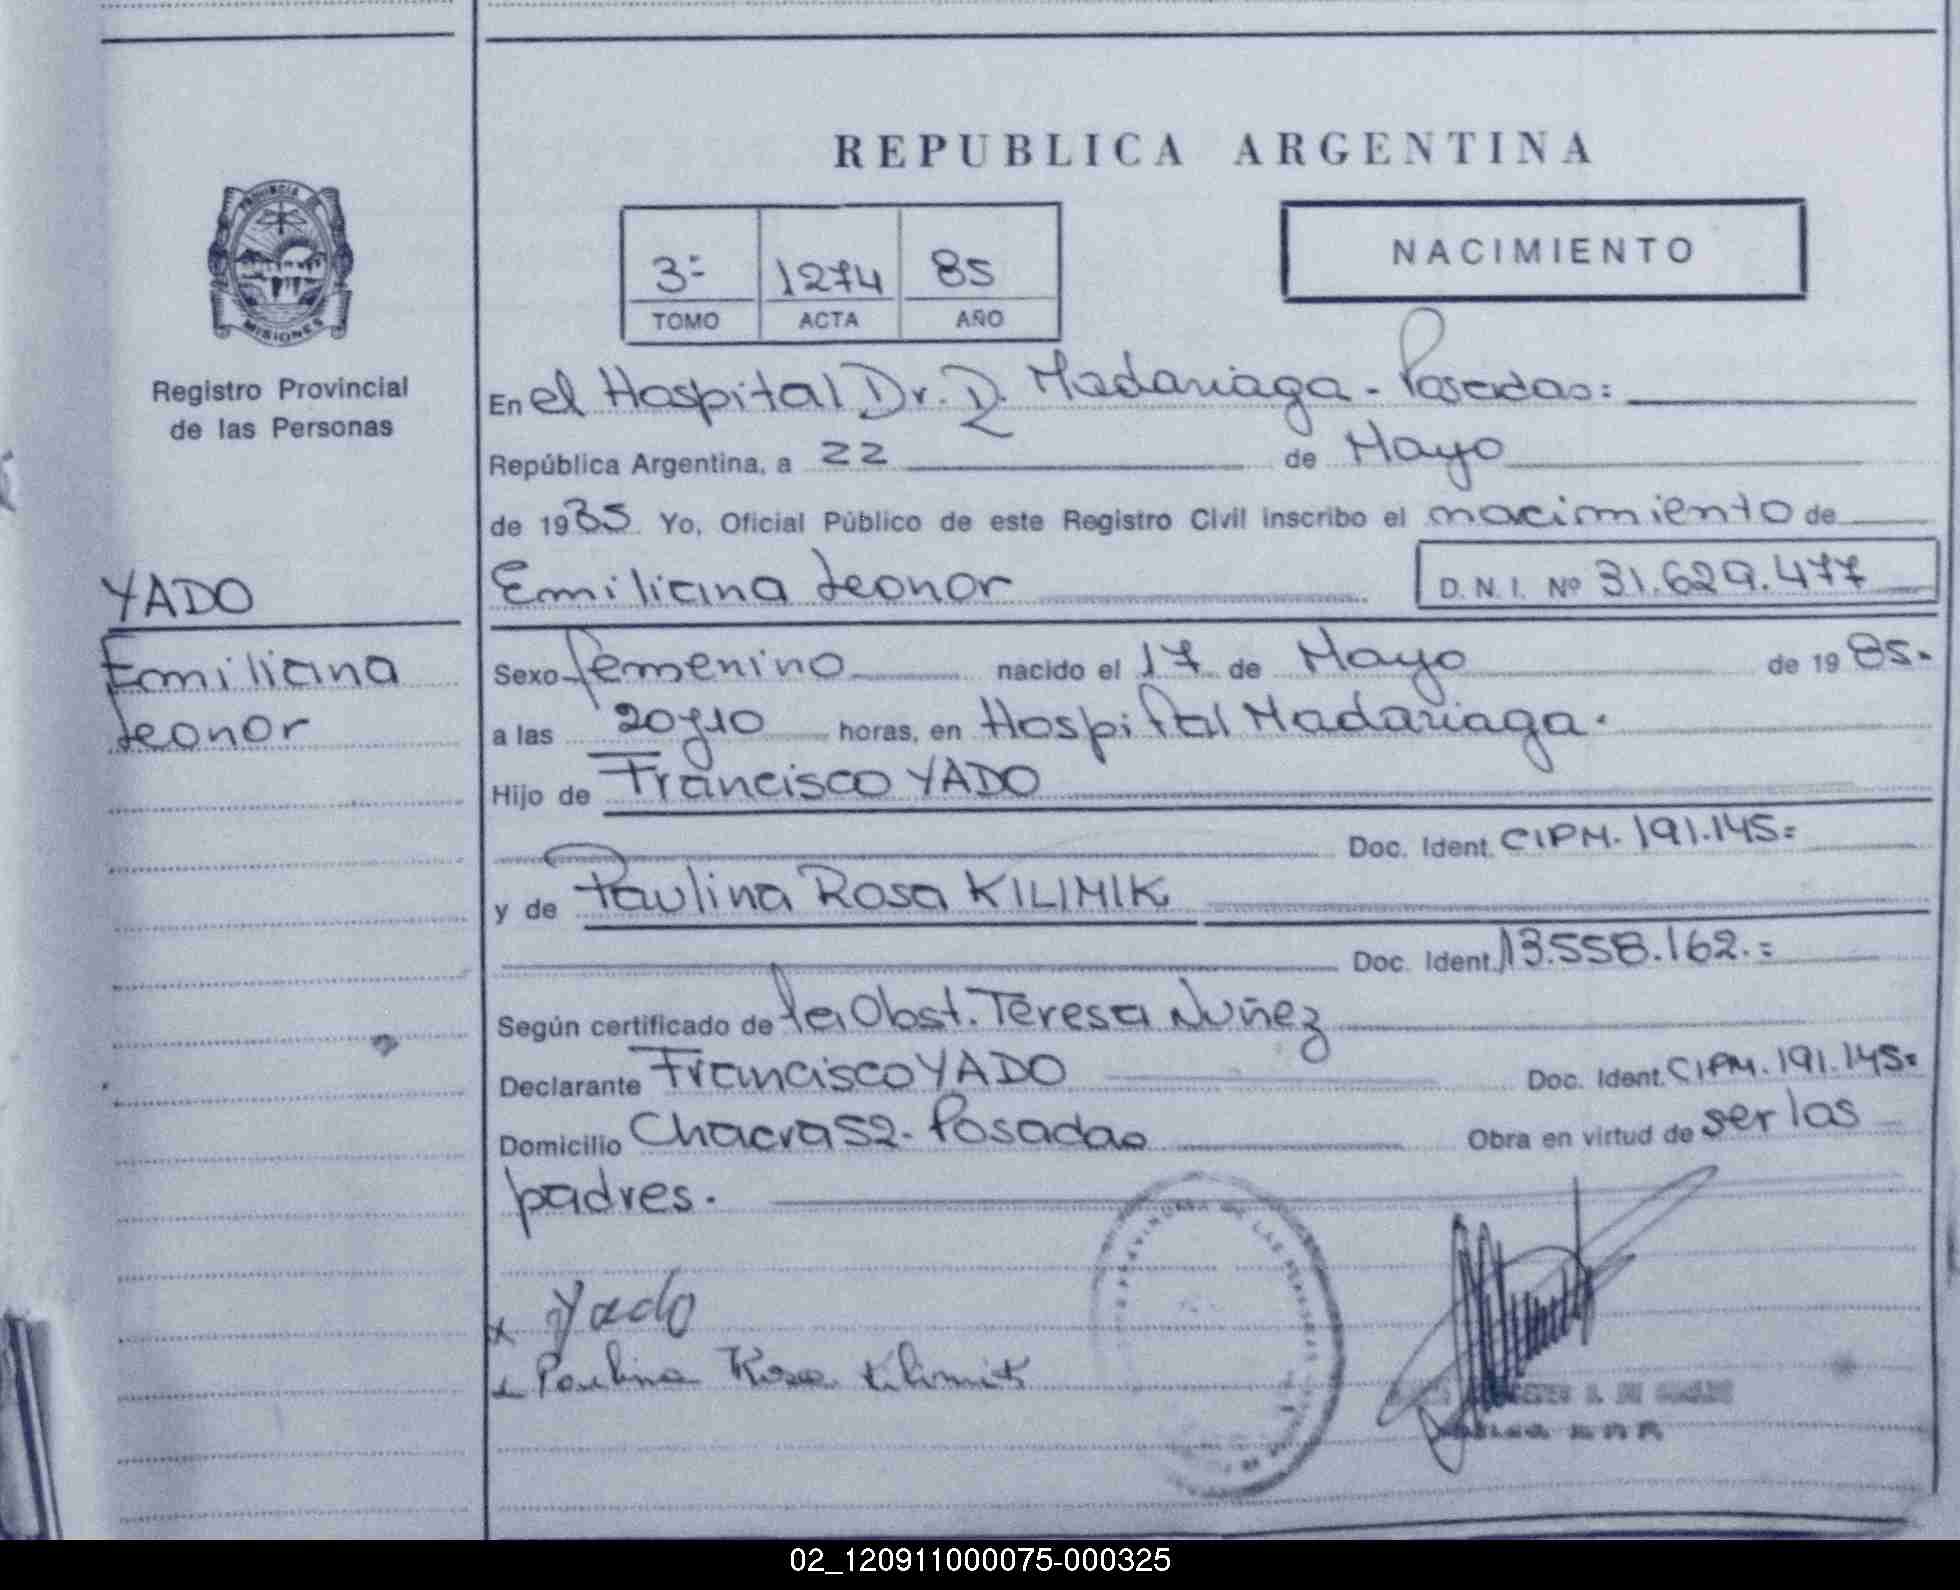 REPUBLICA ARGENTINA
PROVINCIA DE
MISIONES
Registro Provincial
de las Personas
3=
1274
85
TOMO
ACTA
AÑO
NACIMIENTO
En el Hospital Dr. R. Madariaga - Posadas:
República Argentina, a 22 de Mayo
de 1985 Yo, Oficial Público de este Registro Civil inscribo el nacimiento de
YADO
Emiliana Leonor
D.N.I. Nº 31.629.477
Emiliana
Leonor
Sexo femenino nacido el 17 de Mayo de 1985.
a las 20y10 horas, en Hospital Madariaga.
Hijo de Francisco YADO
Doc. Ident. CIPM. 191.145=
y de Paulina Rosa KILIMIK
Doc. Ident. 13.558.162.=
Según certificado de la Obst. Teresa Nuñez
Declarante Francisco YADO Doc. Ident. CIPM. 191.145=
Domicilio Chacra 52- Posadas Obra en virtud de ser los
padres.
x Yado
x Paulina Rosa Kilimik
02_120911000075-000325